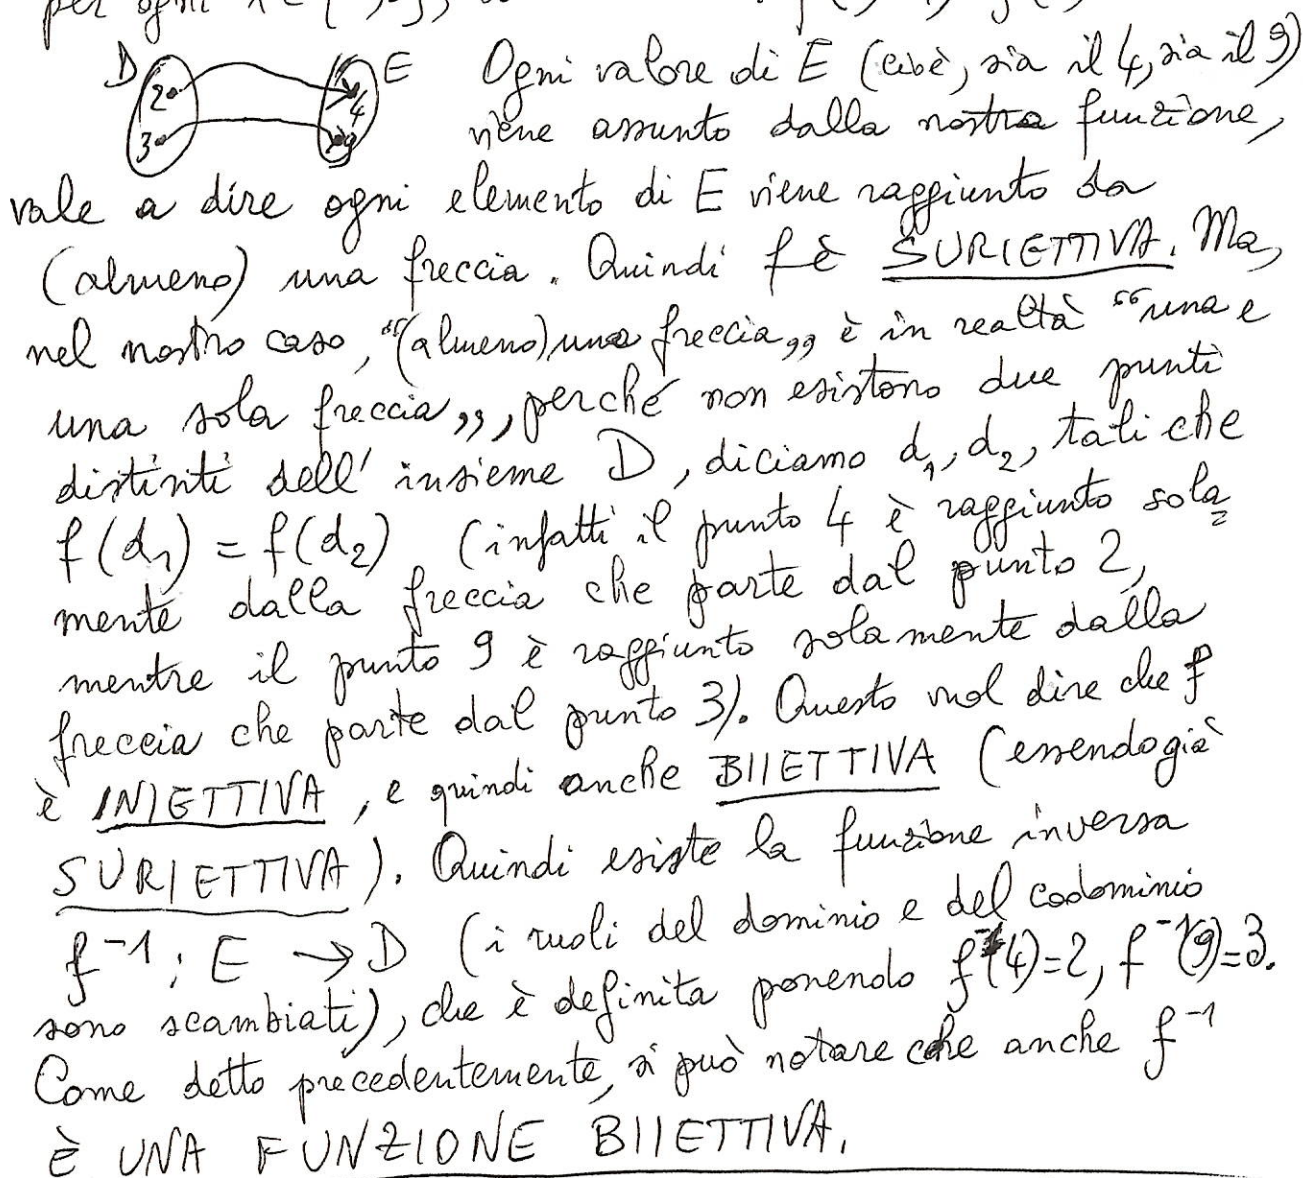 per ogni
D 2 3 4 9 E Ogni valore di E (cioè, sia il 4, sia il 9)
viene assunto dalla nostra funzione,
vale a dire ogni elemento di E viene raggiunto da
(almeno) una freccia. Quindi f è SURIETTIVA. Ma,
nel nostro caso, “(almeno) una freccia„ è in realtà “una e
una sola freccia„, perché non esistono due punti
distinti dell'insieme D, diciamo d₁, d₂, tali che
f(d₁) = f(d₂) (infatti il punto 4 è raggiunto sola=
mente dalla freccia che parte dal punto 2,
mentre il punto 9 è raggiunto solamente dalla
freccia che parte dal punto 3). Questo vuol dire che f
è INIETTIVA, e quindi anche BIIETTIVA (essendo già
SURIETTIVA). Quindi esiste la funzione inversa
f⁻¹: E → D (i ruoli del dominio e del codominio
sono scambiati), che è definita ponendo f⁻¹(4)=2, f⁻¹(9)=3.
Come detto precedentemente, si può notare che anche f⁻¹
È UNA FUNZIONE BIIETTIVA.